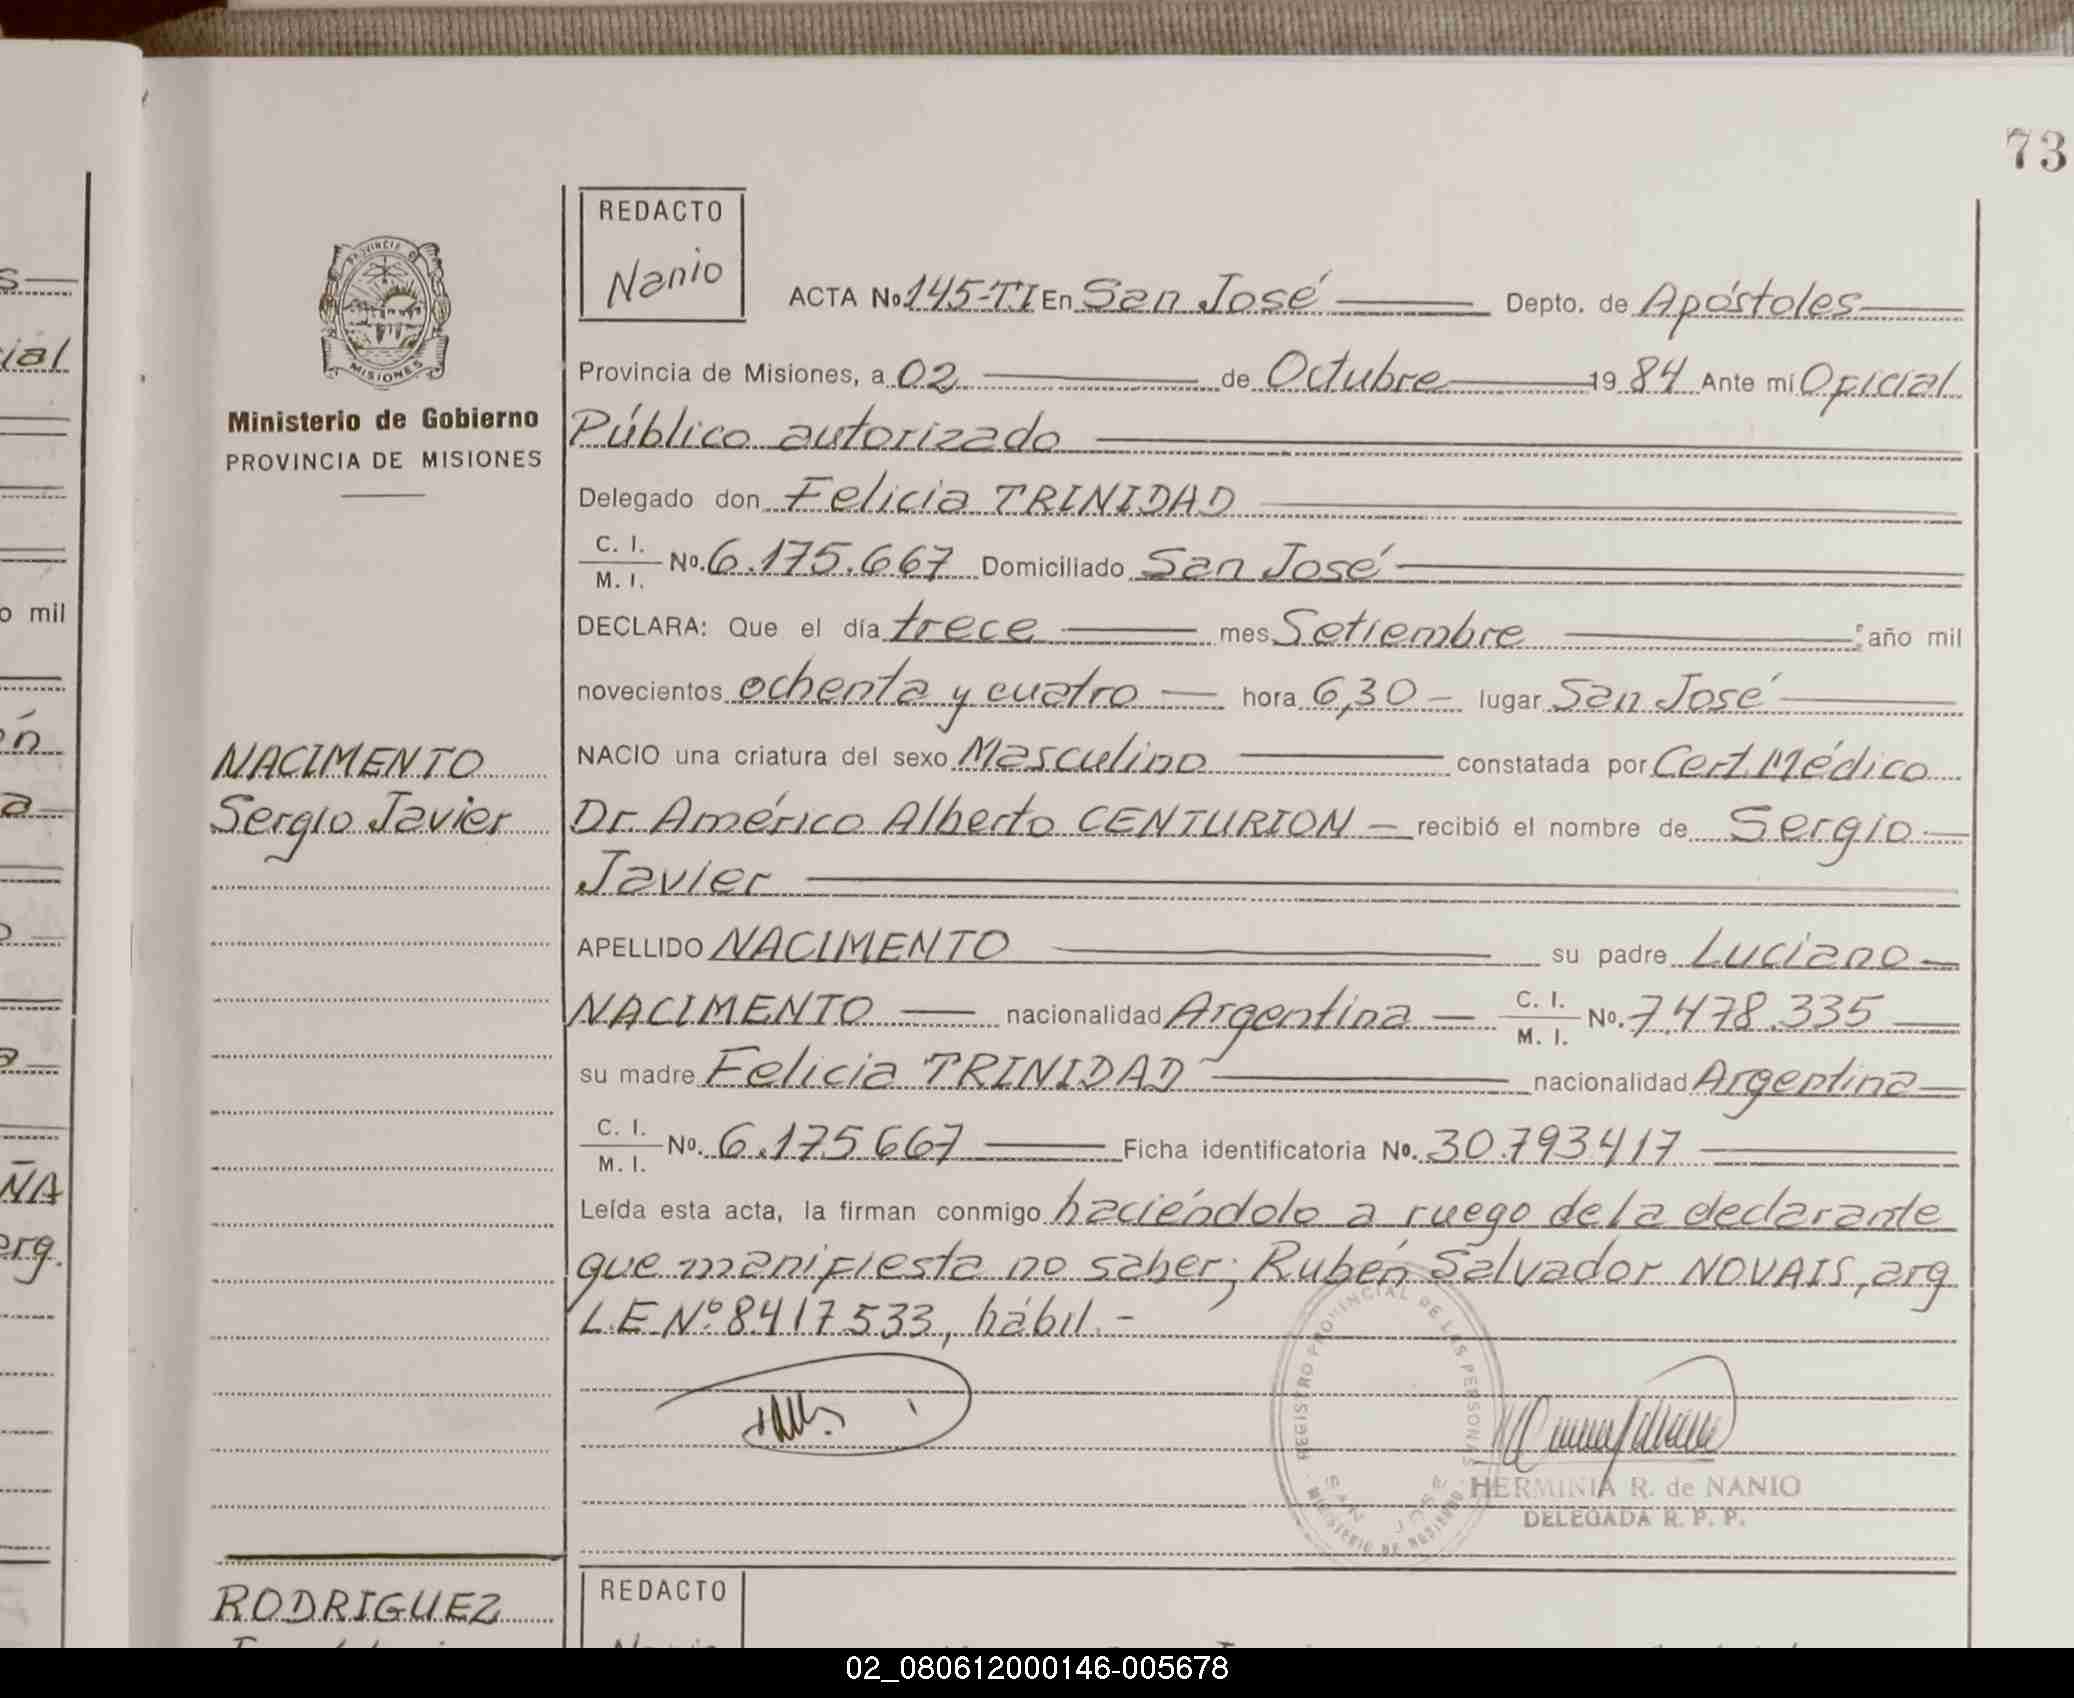 73
REDACTO
Nanio
ACTA No. 145-TI En San José Depto. de Apóstoles
Provincia de Misiones, a 02 de Octubre 19 84 Ante mí Oficial
Público autorizado
Delegado don Felicia TRINIDAD
C. I. M. I. No. 6.175.667 Domiciliado San José
DECLARA: Que el día trece mes Setiembre año mil
novecientos ochenta y cuatro hora 6,30 lugar San José
NACIO una criatura del sexo Masculino constatada por Cert. Médico
Dr. Américo Alberto CENTURION recibió el nombre de Sergio
Javier
APELLIDO NACIMENTO su padre Luciano
NACIMENTO nacionalidad Argentina C. I. M. I. No. 7.478.335
su madre Felicia TRINIDAD nacionalidad Argentina
C. I. M. I. No. 6.175667 Ficha identificatoria No. 30.793417
Leída esta acta, la firman conmigo haciéndolo a ruego de la declarante
que manifiesta no saber; Rubén Salvador NOVAIS, arg
L.E. Nº 8.417.533, hábil.-
REGISTRO PROVINCIAL DE LAS PERSONAS
SAN JOSE
HERMINIA R. de NANIO
DELEGADA R. P. P.
PROVINCIA DE
MISIONES
Ministerio de Gobierno
PROVINCIA DE MISIONES
NACIMENTO
Sergio Javier
RODRIGUEZ
REDACTO
s
ial
o mil
ón
a
o
a
ÑA
erg.
02_080612000146-005678